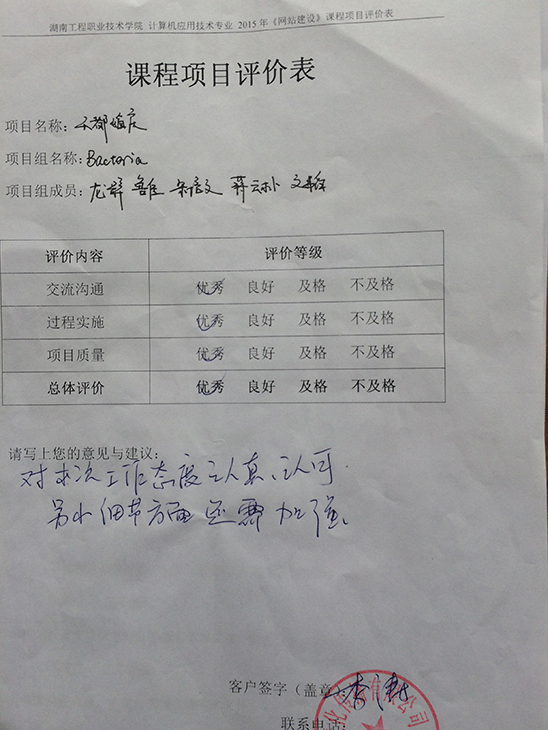 湖南工程职业技术学院 计算机应用技术专业 2015年《网站建设》课程项目评价表
课程项目评价表
项目名称：
项目组名称：Bacteria
项目组成员：
评价内容 评价等级
交流沟通 优秀 良好 及格 不及格
过程实施 优秀 良好 及格 不及格
项目质量 优秀 良好 及格 不及格
总体评价 优秀 良好 及格 不及格
请写上您的意见与建议：
对本次工作态度认真、认可.
另外细节方面还需加强.
客户签字（盖章）：
联系电话：